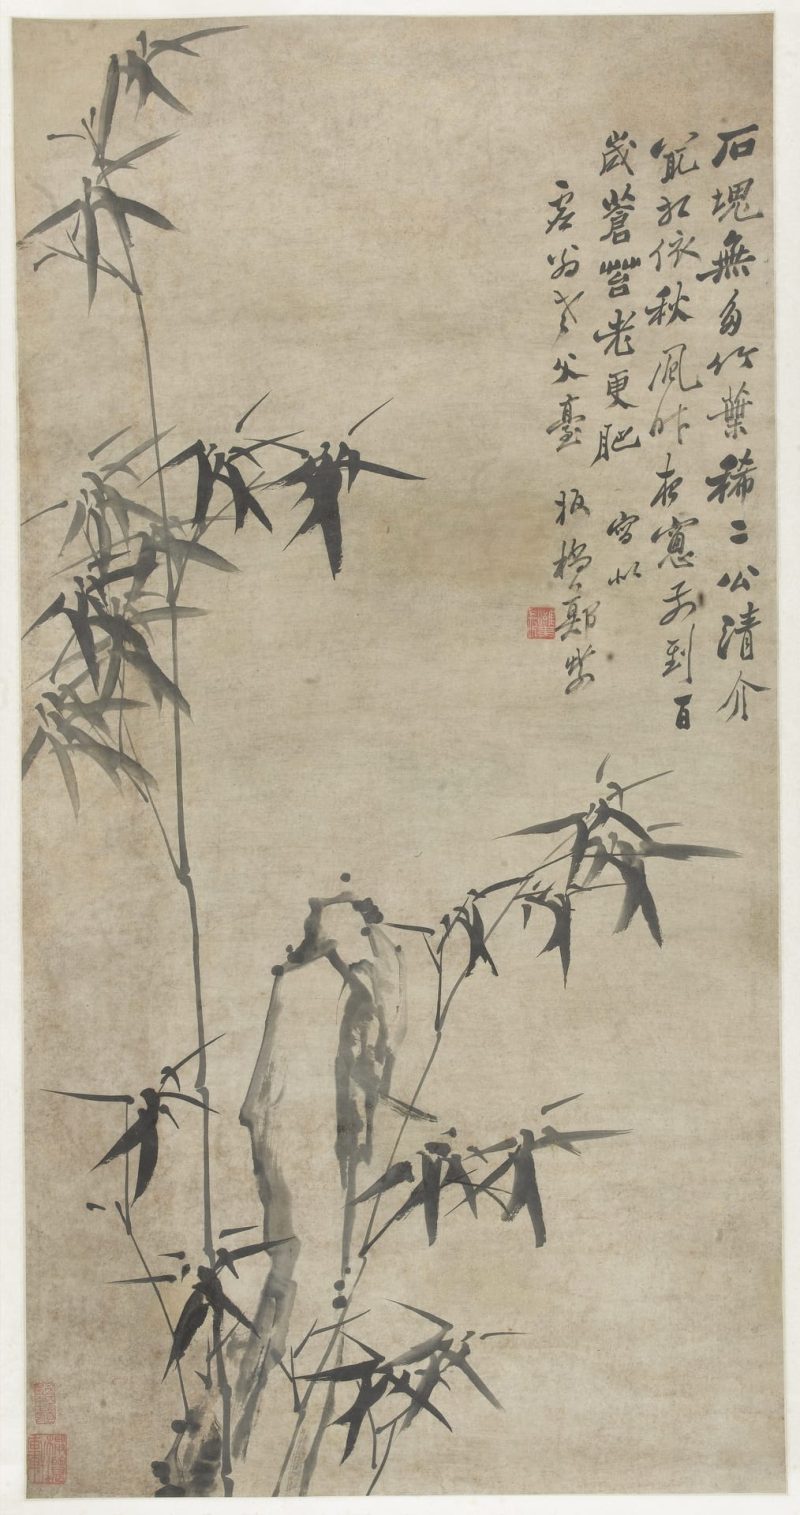 石塊無多竹葉稀二公清介
最相依秋風昨夜窗前到百
歲蒼苔老更肥 寫似
老父臺 板橋鄭燮